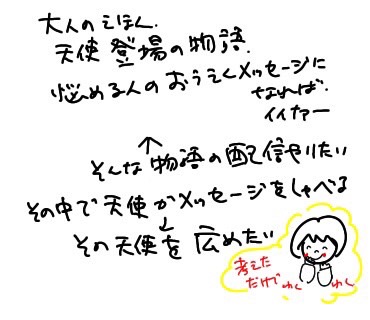 大人のえほん.
天使登場の物語.
悩める人のおうえんメッセージに
なれば.
イイナァー
↑
そんな物語の配信やりたい
その中で天使がメッセージをしゃべる
↓
その天使を広めたい
考えた
だけで
わく
わく